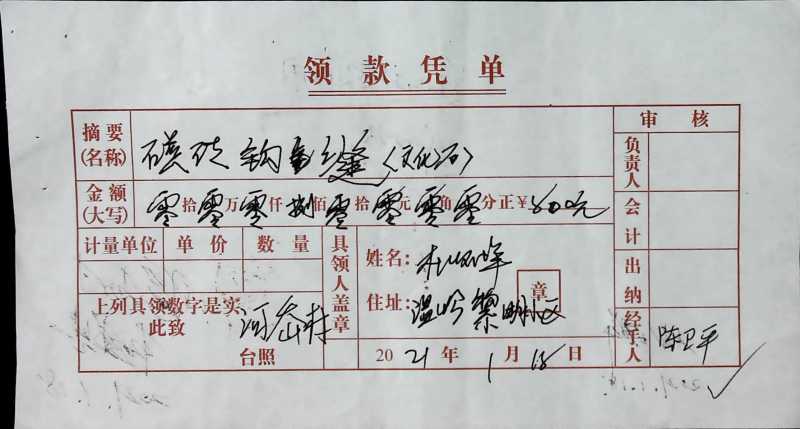 领款凭单
摘要(名称) 砖 钩 缝〈文化石〉
审核
负责人
金额(大写) 零拾零万零仟捌佰零拾零元零角零分正¥800元
会计
计量单位 单价 数量
具领人盖章
姓名:
出纳
住址: 温岭黎明小区
章
上列具领数字是实
此致
河岙村
台照
2021年1月18日
经手人 陈卫平